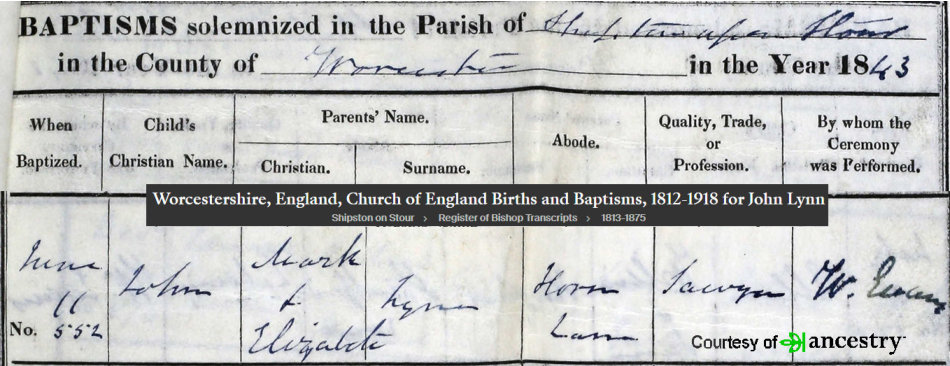 BAPTISMS solemnized in the Parish of Shipston upon Stour
in the County of Worcester in the Year 1843
When Baptized.
Child's Christian Name.
Parents' Name.
Christian.
Surname.
Abode.
Quality, Trade, or Profession.
By whom the Ceremony was Performed.
Worcestershire, England, Church of England Births and Baptisms, 1812-1918 for John Lynn
Shipston on Stour > Register of Bishop Transcripts > 1813-1875
June
11
No. 552
John
Mark
&
Elizabeth
Lynn
Horn
Lane
Sawyer
W. Evans
Courtesy of ancestry